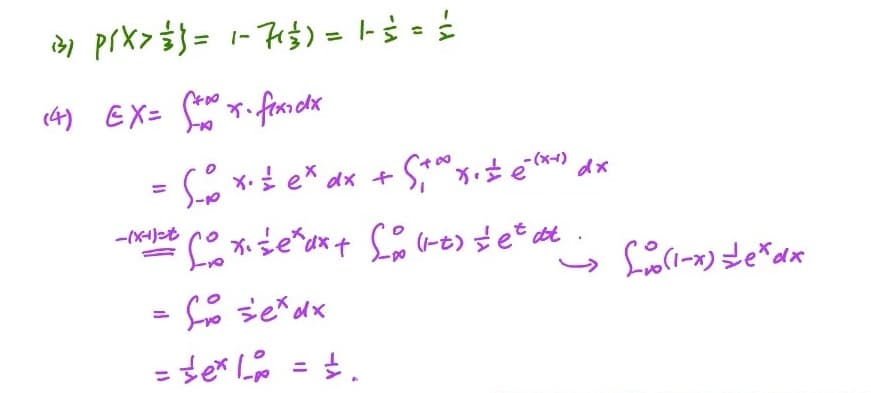 (3) P{X>1/3} = 1-F(1/3) = 1-1/2 = 1/2
(4) EX = ∫_{-∞}^{+∞} x·f(x)dx
= ∫_{-∞}^{0} x·1/2 e^x dx + ∫_{1}^{+∞} x·1/2 e^{-(x-1)} dx
-(x-1)=t
= ∫_{-∞}^{0} x·1/2 e^x dx + ∫_{-∞}^{0} (1-t) 1/2 e^t dt. → ∫_{-∞}^{0} (1-x) 1/2 e^x dx
= ∫_{-∞}^{0} 1/2 e^x dx
= 1/2 e^x |_{-∞}^{0} = 1/2.